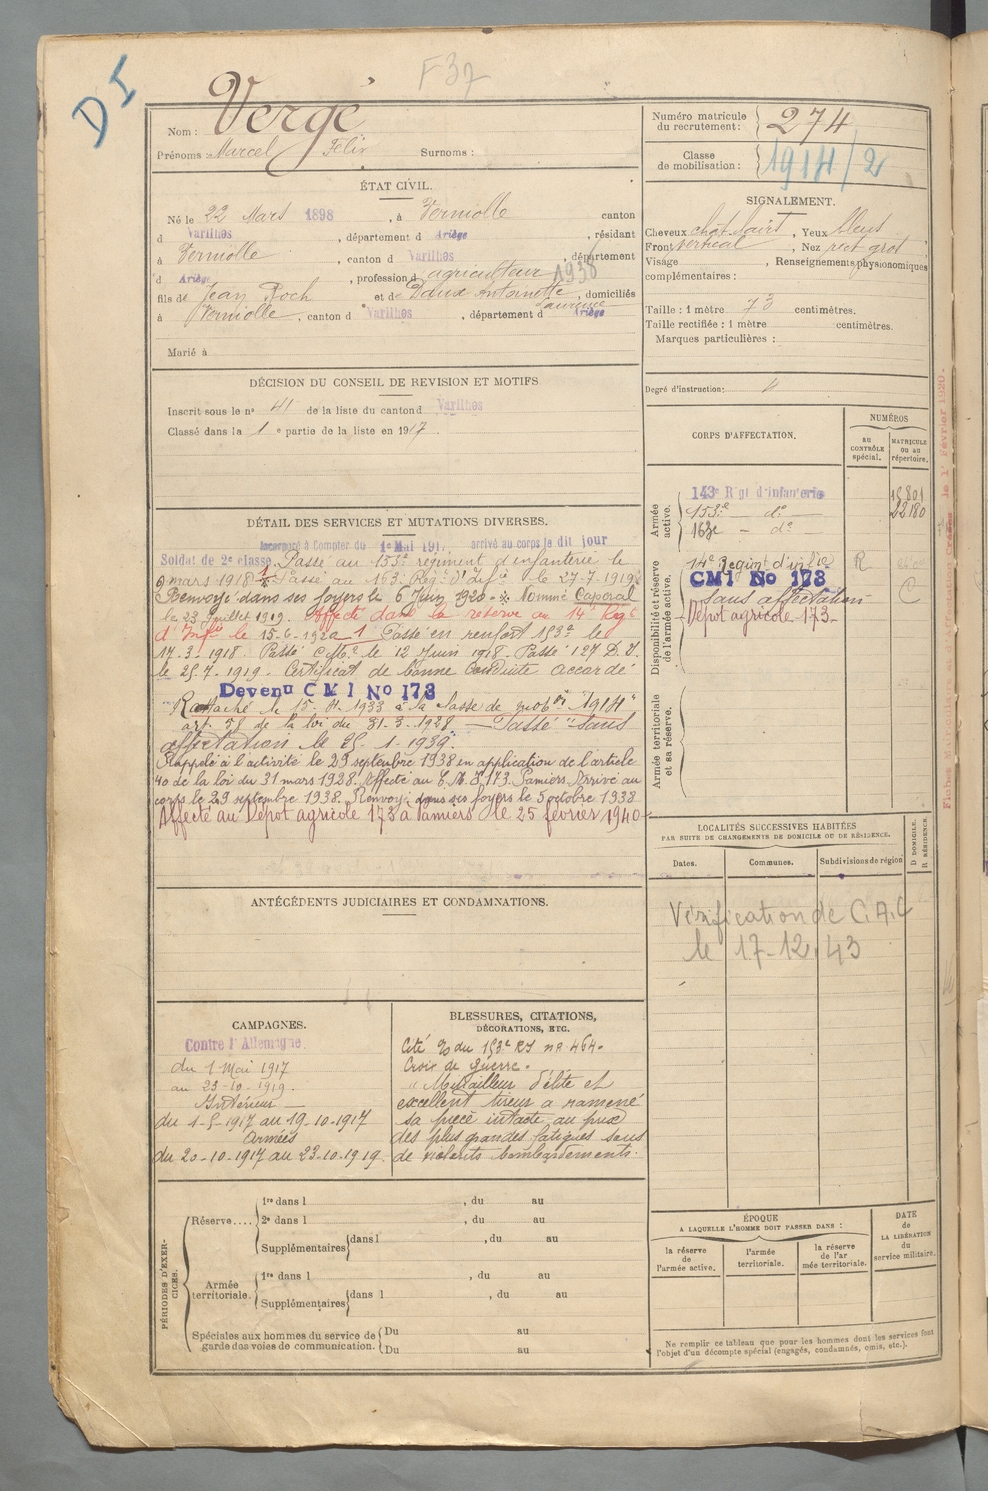 DI
F 37
Nom : Vergé
Prénoms : Marcel Félix Surnoms :
Numéro matricule du recrutement : 274
Classe de mobilisation : 1914/2
ÉTAT CIVIL.
Né le 22 Mars 1898, à Verniolle canton
d Varilhes, département d Ariège, résidant
à Verniolle, canton d Varilhes, département
d Ariège, profession d agriculteur 1938
fils de Jean Roch et de Daux Antoinette Laurence, domiciliés
à Verniolle, canton d Varilhes, département d Ariège
Marié à
SIGNALEMENT.
Cheveux chat. clairs, Yeux bleus
Front vertical, Nez rect gros
Visage , Renseignements physionomiques
complémentaires :
Taille : 1 mètre 73 centimètres.
Taille rectifiée : 1 mètre centimètres.
Marques particulières :
Degré d'instruction :
DÉCISION DU CONSEIL DE REVISION ET MOTIFS
Inscrit sous le n° 41 de la liste du canton d Varilhes
Classé dans la 1e partie de la liste en 1917
DÉTAIL DES SERVICES ET MUTATIONS DIVERSES.
Incorporé à Compter du 1e Mai 1917 arrivé au corps le dit jour
Soldat de 2e classe. Passé au 153e régiment d'infanterie le
9 mars 1918 Passé au 163e Reg. d'Infie le 27-7-1919
Renvoyé dans ses foyers le 6 Juin 1920 Nommé Caporal
le 23 juillet 1919. Affecté dans la réserve au 14e Regt
d'Infie le 15-6-1920 1 Passé en renfort 153e le
17-3-1918. Passé le 12 Juin 1918. Passé 127 D.I.
le 25-7-1919. Certificat de bonne Conduite accordé
Devenu CMI No 173
Rattaché le 15. 1933 à la classe de mobon "1914"
art. 58 de la loi du 31-3-1928 Passé "sans
affectation le 25-1-1939".
Rappelé à l'activité le 29 septembre 1938 en application de l'article
40 de la loi du 31 mars 1928. Affecté au 173. Pamiers. Arrivé au
corps le 29 septembre 1938. Renvoyé dans ses foyers le 5 octobre 1938
Affecté au Dépôt agricole 173 à Pamiers le 25 février 1940
CORPS D'AFFECTATION.
NUMÉROS
au CONTRÔLE spécial.
MATRICULE ou au répertoire.
Armée active.
143e Rgt d'infanterie 15801
153e do 22180
163e - do
Disponibilité et réserve de l'armée active.
14e Regimt d'infie R
CMI No 173
sans affectation C
Dépot agricole 173
Armée territoriale et sa réserve.
LOCALITÉS SUCCESSIVES HABITÉES
PAR SUITE DE CHANGEMENTS DE DOMICILE OU DE RÉSIDENCE.
D. DOMICILE. R. RÉSIDENCE.
Dates. Communes. Subdivisions de région
Vérification de C.A.C
le 17-12.43
ANTÉCÉDENTS JUDICIAIRES ET CONDAMNATIONS.
CAMPAGNES.
Contre l'Allemagne.
du 1 Mai 1917
au 23-10-1919.
Intérieur
du 1-5-1917 au 19-10-1917
Armées
du 20-10-1917 au 23-10-1919.
BLESSURES, CITATIONS,
DÉCORATIONS, ETC.
Cité du 153e RI no 464.
Croix de guerre.
"Mitrailleur d'élite et
excellent tireur a ramené
sa pièce intacte au prix
des plus grandes fatigues sous
de violents bombardements.
PÉRIODES D'EXERCICES.
Réserve.... 1re dans l , du au
2e dans l , du au
Supplémentaires dans l , du au
Armée territoriale. 1re dans l , du au
Supplémentaires dans l , du au
Spéciales aux hommes du service de garde des voies de communication. Du au
Du au
ÉPOQUE
A LAQUELLE L'HOMME DOIT PASSER DANS :
la réserve de l'armée active.
l'armée territoriale.
la réserve de l'armée territoriale.
DATE de LA LIBÉRATION du service militaire.
Ne remplir ce tableau que pour les hommes dont les services font
l'objet d'un décompte spécial (engagés, condamnés, omis, etc.).